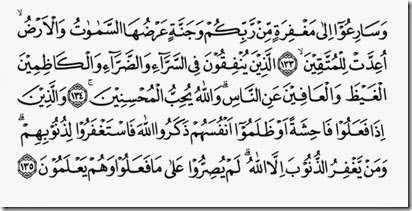 وَسَارِعُوٓا اِلٰى مَغْفِرَةٍ مِّنْ رَّبِّكُمْ وَجَنَّةٍ عَرْضُهَا السَّمٰوٰتُ وَالْاَرْضُۙ
اُعِدَّتْ لِلْمُتَّقِيْنَۙ ﴿١٣٣﴾ الَّذِيْنَ يُنْفِقُوْنَ فِى السَّرَّاۤءِ وَالضَّرَّاۤءِ وَالْكَاظِمِيْنَ
الْغَيْظَ وَالْعَافِيْنَ عَنِ النَّاسِۗ وَاللّٰهُ يُحِبُّ الْمُحْسِنِيْنَۚ ﴿١٣٤﴾ وَالَّذِيْنَ
اِذَا فَعَلُوْا فَاحِشَةً اَوْ ظَلَمُوْٓا اَنْفُسَهُمْ ذَكَرُوا اللّٰهَ فَاسْتَغْفَرُوْا لِذُنُوْبِهِمْۗ
وَمَنْ يَّغْفِرُ الذُّنُوْبَ اِلَّا اللّٰهُۗ لَمْ يُصِرُّوْا عَلٰى مَا فَعَلُوْا وَهُمْ يَعْلَمُوْنَ ﴿١٣٥﴾